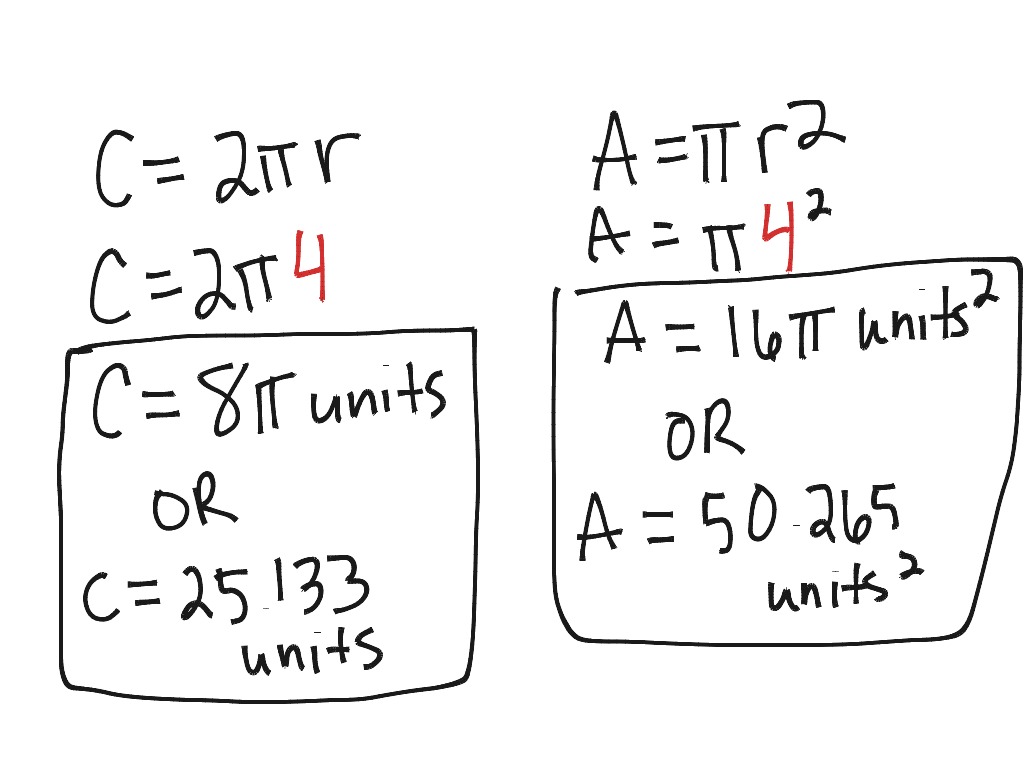 C = 2πr
C = 2π4
C = 8π units
OR
C = 25.133
units
A = πr²
A = π4²
A = 16π units²
OR
A = 50.265
units²